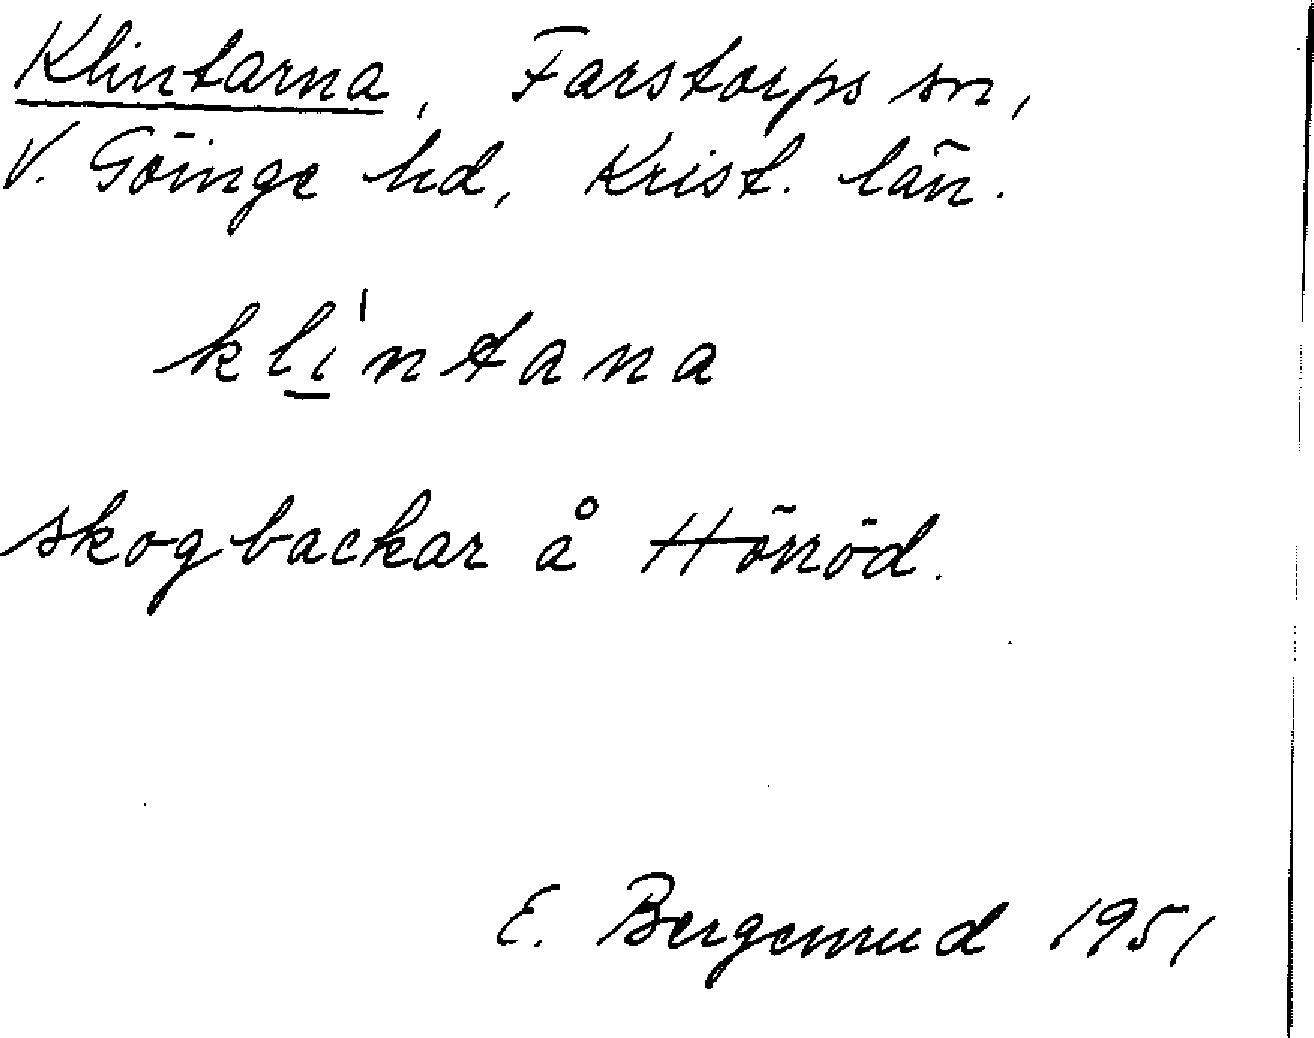 Klintarna, Farstorps sn,
V. Göinge hd, Krist. län.
kli'ntana
skogbackar å Hönöd.
E. Bergemrud 1951